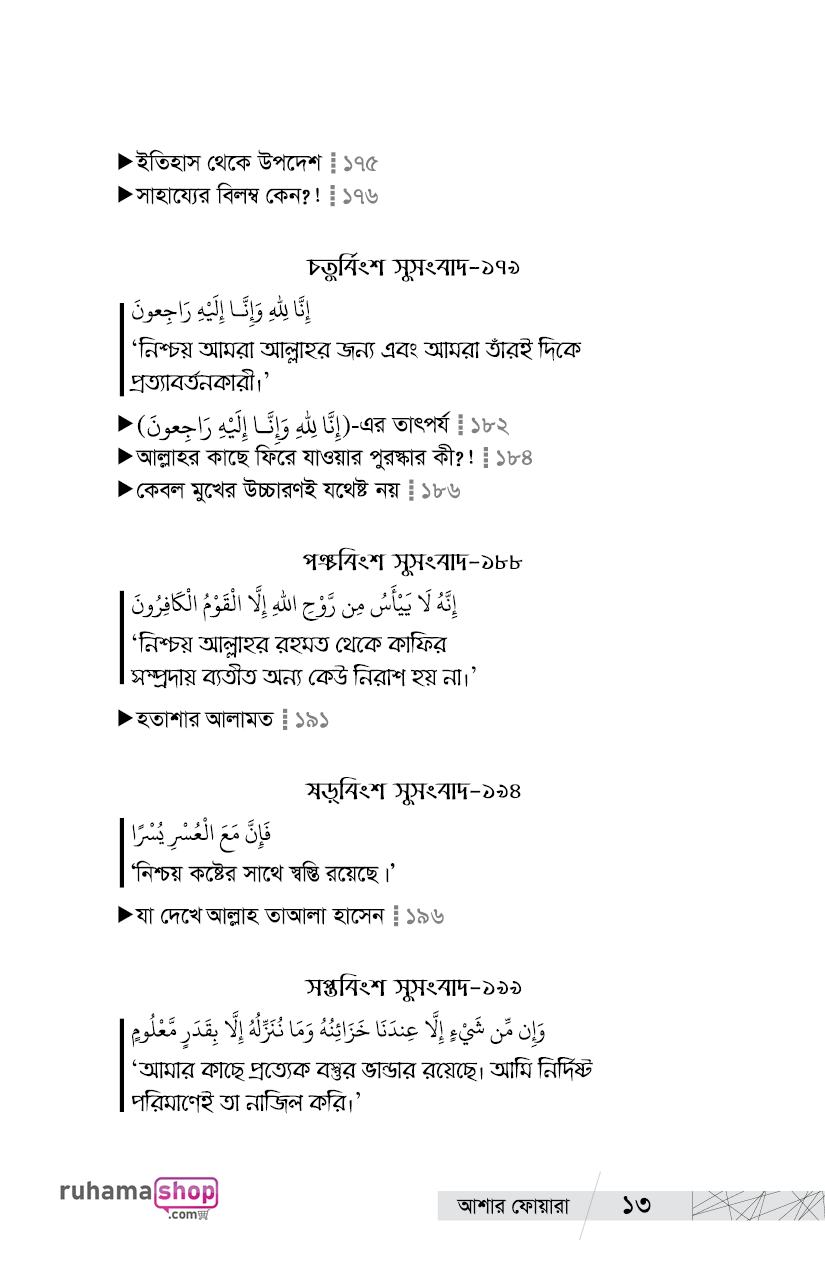 ▶ইতিহাস থেকে উপদেশ ⁞ ১৭৫
▶সাহায্যের বিলম্ব কেন?! ⁞ ১৭৬
চতুর্বিংশ সুসংবাদ-১৭৯
إِنَّا لِلَّهِ وَإِنَّـا إِلَيْهِ رَاجِعونَ
‘নিশ্চয় আমরা আল্লাহর জন্য এবং আমরা তাঁরই দিকে
প্রত্যাবর্তনকারী।’
▶(إِنَّا لِلَّهِ وَإِنَّـا إِلَيْهِ رَاجِعونَ)-এর তাৎপর্য ⁞ ১৮২
▶আল্লাহর কাছে ফিরে যাওয়ার পুরস্কার কী?! ⁞ ১৮৪
▶কেবল মুখের উচ্চারণই যথেষ্ট নয় ⁞ ১৮৬
পঞ্চবিংশ সুসংবাদ-১৮৮
إِنَّهُ لَا يَيْأَسُ مِن رَّوْحِ اللهِ إِلَّا الْقَوْمُ الْكَافِرُونَ
‘নিশ্চয় আল্লাহর রহমত থেকে কাফির
সম্প্রদায় ব্যতীত অন্য কেউ নিরাশ হয় না।’
▶হতাশার আলামত ⁞ ১৯১
ষড়্‌বিংশ সুসংবাদ-১৯৪
فَإِنَّ مَعَ الْعُسْرِ يُسْرًا
‘নিশ্চয় কষ্টের সাথে স্বস্তি রয়েছে।’
▶যা দেখে আল্লাহ তাআলা হাসেন ⁞ ১৯৬
সপ্তবিংশ সুসংবাদ-১৯৯
وَإِن مِّن شَيْءٍ إِلَّا عِندَنَا خَزَائِنُهُ وَمَا نُنَزِّلُهُ إِلَّا بِقَدَرٍ مَّعْلُومٍ
‘আমার কাছে প্রত্যেক বস্তুর ভান্ডার রয়েছে। আমি নির্দিষ্ট
পরিমাণেই তা নাজিল করি।’
ruhamashop
.com
আশার ফোয়ারা ১৩